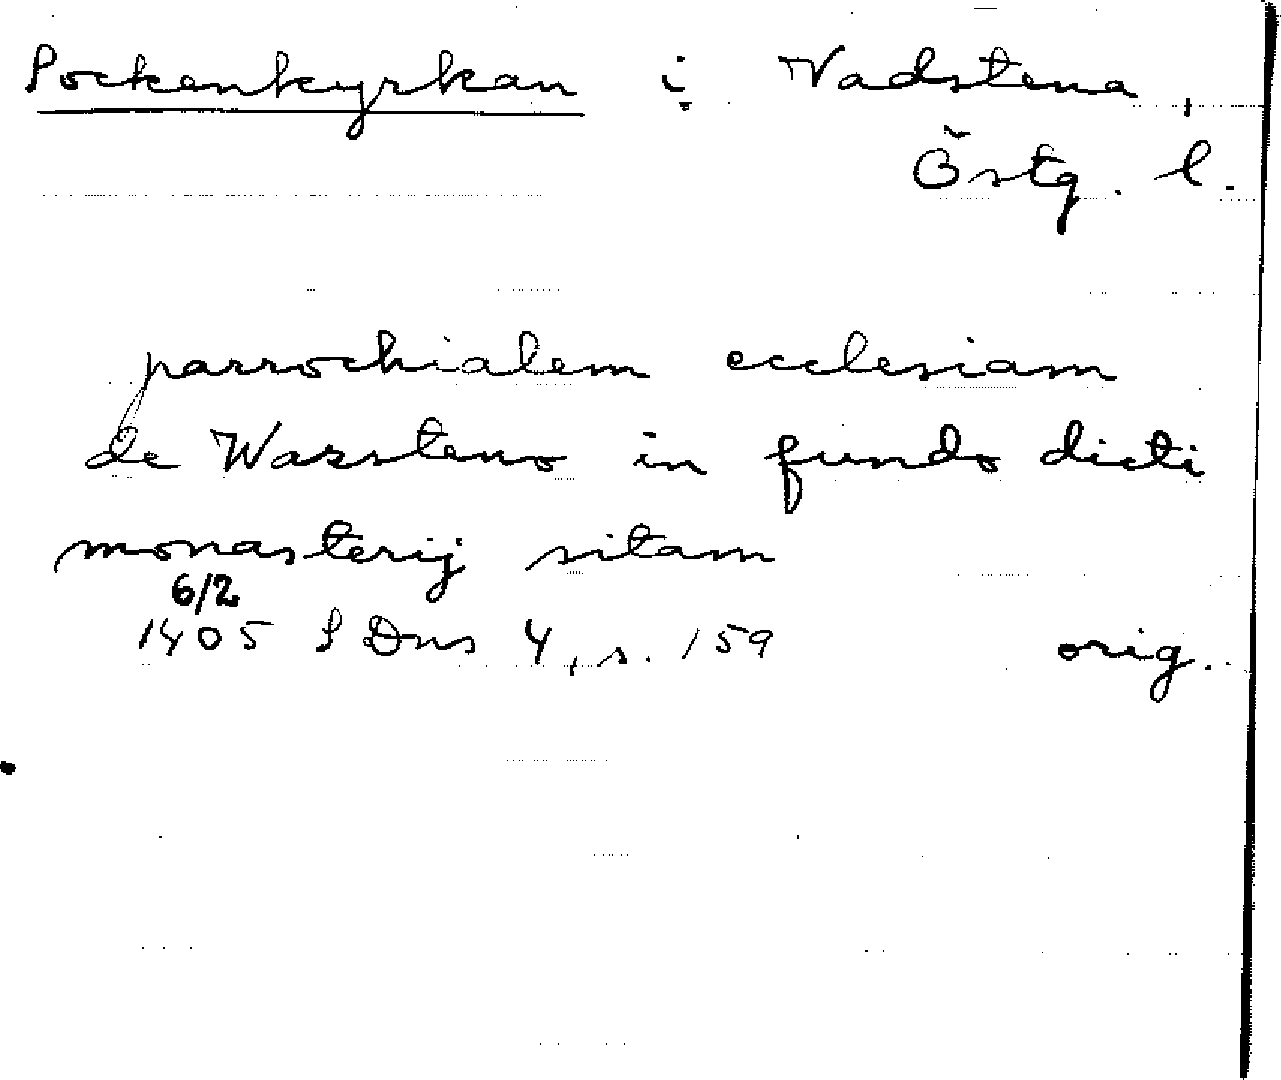 Sockenkyrkan i Vadstena,
Östg. l.
parrochialem ecclesiam
de Wazsteno in fundo dicti
monasterij sitam
6/2
1405 SDns 4, s. 159 orig.